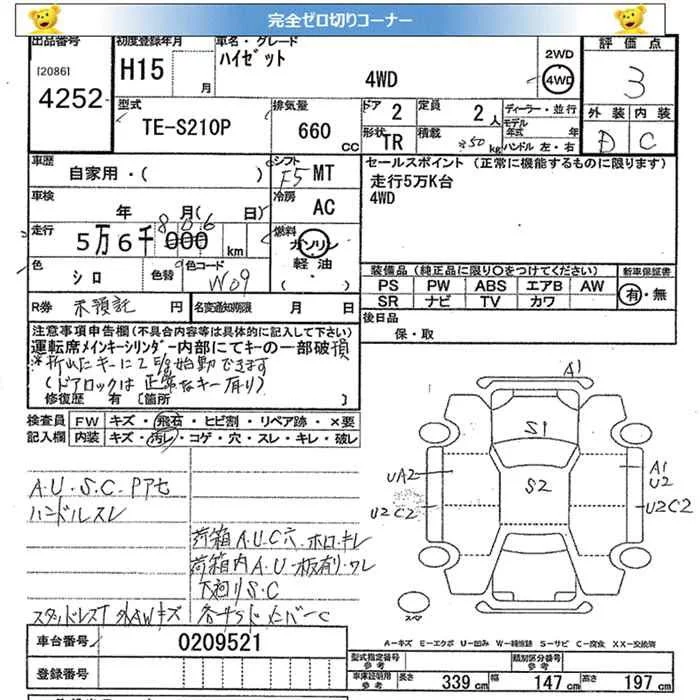 完全ゼロ切りコーナー
出品番号 初度登録年月 車名・グレード 評価点
[2086] 4252 H15 月 ハイゼット 4WD 2WD 4WD 3
型式 排気量 ドア 2 定員 2人 ディーラー・並行 外装 内装
TE-S210P 660 cc 形状 TR 積載 350kg モデル年式 年 ハンドル 左・右 D C
車歴 シフト セールスポイント(正常に機能するものに限ります)
自家用・( ) F5 MT 走行5万K台
4WD
車検 冷房
年 月( 日) AC
走行 燃料
5万6千000 806 km ガソリン
軽油
・
色 色替 色コード 装備品(純正品に限り○をつけてください) 新車保証書
シロ W09 PS PW ABS エアB AW 有・無
SR ナビ TV カワ
R券 未預託 円 名変通知期限 月 日 後日品
保・取
注意事項申告欄(不具合内容等は具体的に記入して下さい)
運転席メインキーシリンダー内部にてキーの一部破損
*折れたキーにて E/g始動できます
(ドアロックは正常なキー有り)
修復歴 有 [箇所 ]
検査員 FW キズ・飛石・ヒビ割・リペア跡・×要
記入欄 内装 キズ・汚レ・コゲ・穴・スレ・キレ・破レ
A1
S1
UA2 S2 A1
U2
U2C2 U2C2
A・U・S・C・Pアセ
ハンドルスレ
荷箱A.U.C穴・ホロ・キレ
荷箱内A.U・板有り・ワレ
下廻りS.C
スタッドレスT 外AWキズ 各サイドメンバーC
スペア
A−キズ E−エクボ U−凹み W−補修跡 S−サビ C−腐食 XX−交換済
車台番号 0209521
登録番号
型式指定番号 参考 類別区分番号 参考
車庫証明用 参考 長さ 339cm 幅 147cm 高さ 197cm